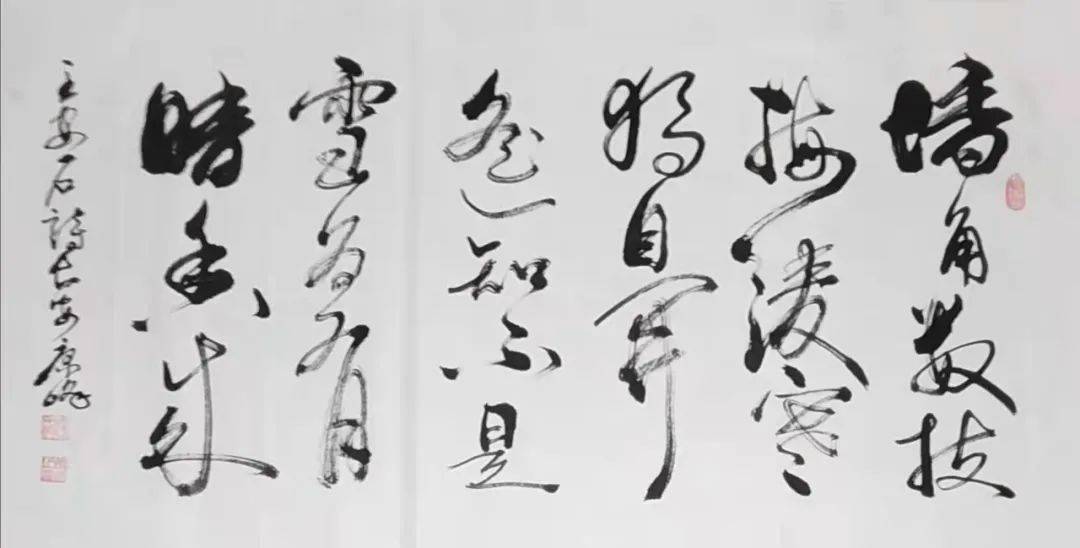 墙角数枝
梅凌寒
独自开
遥知不是
雪为有
暗香来
王安石詩长安康峰